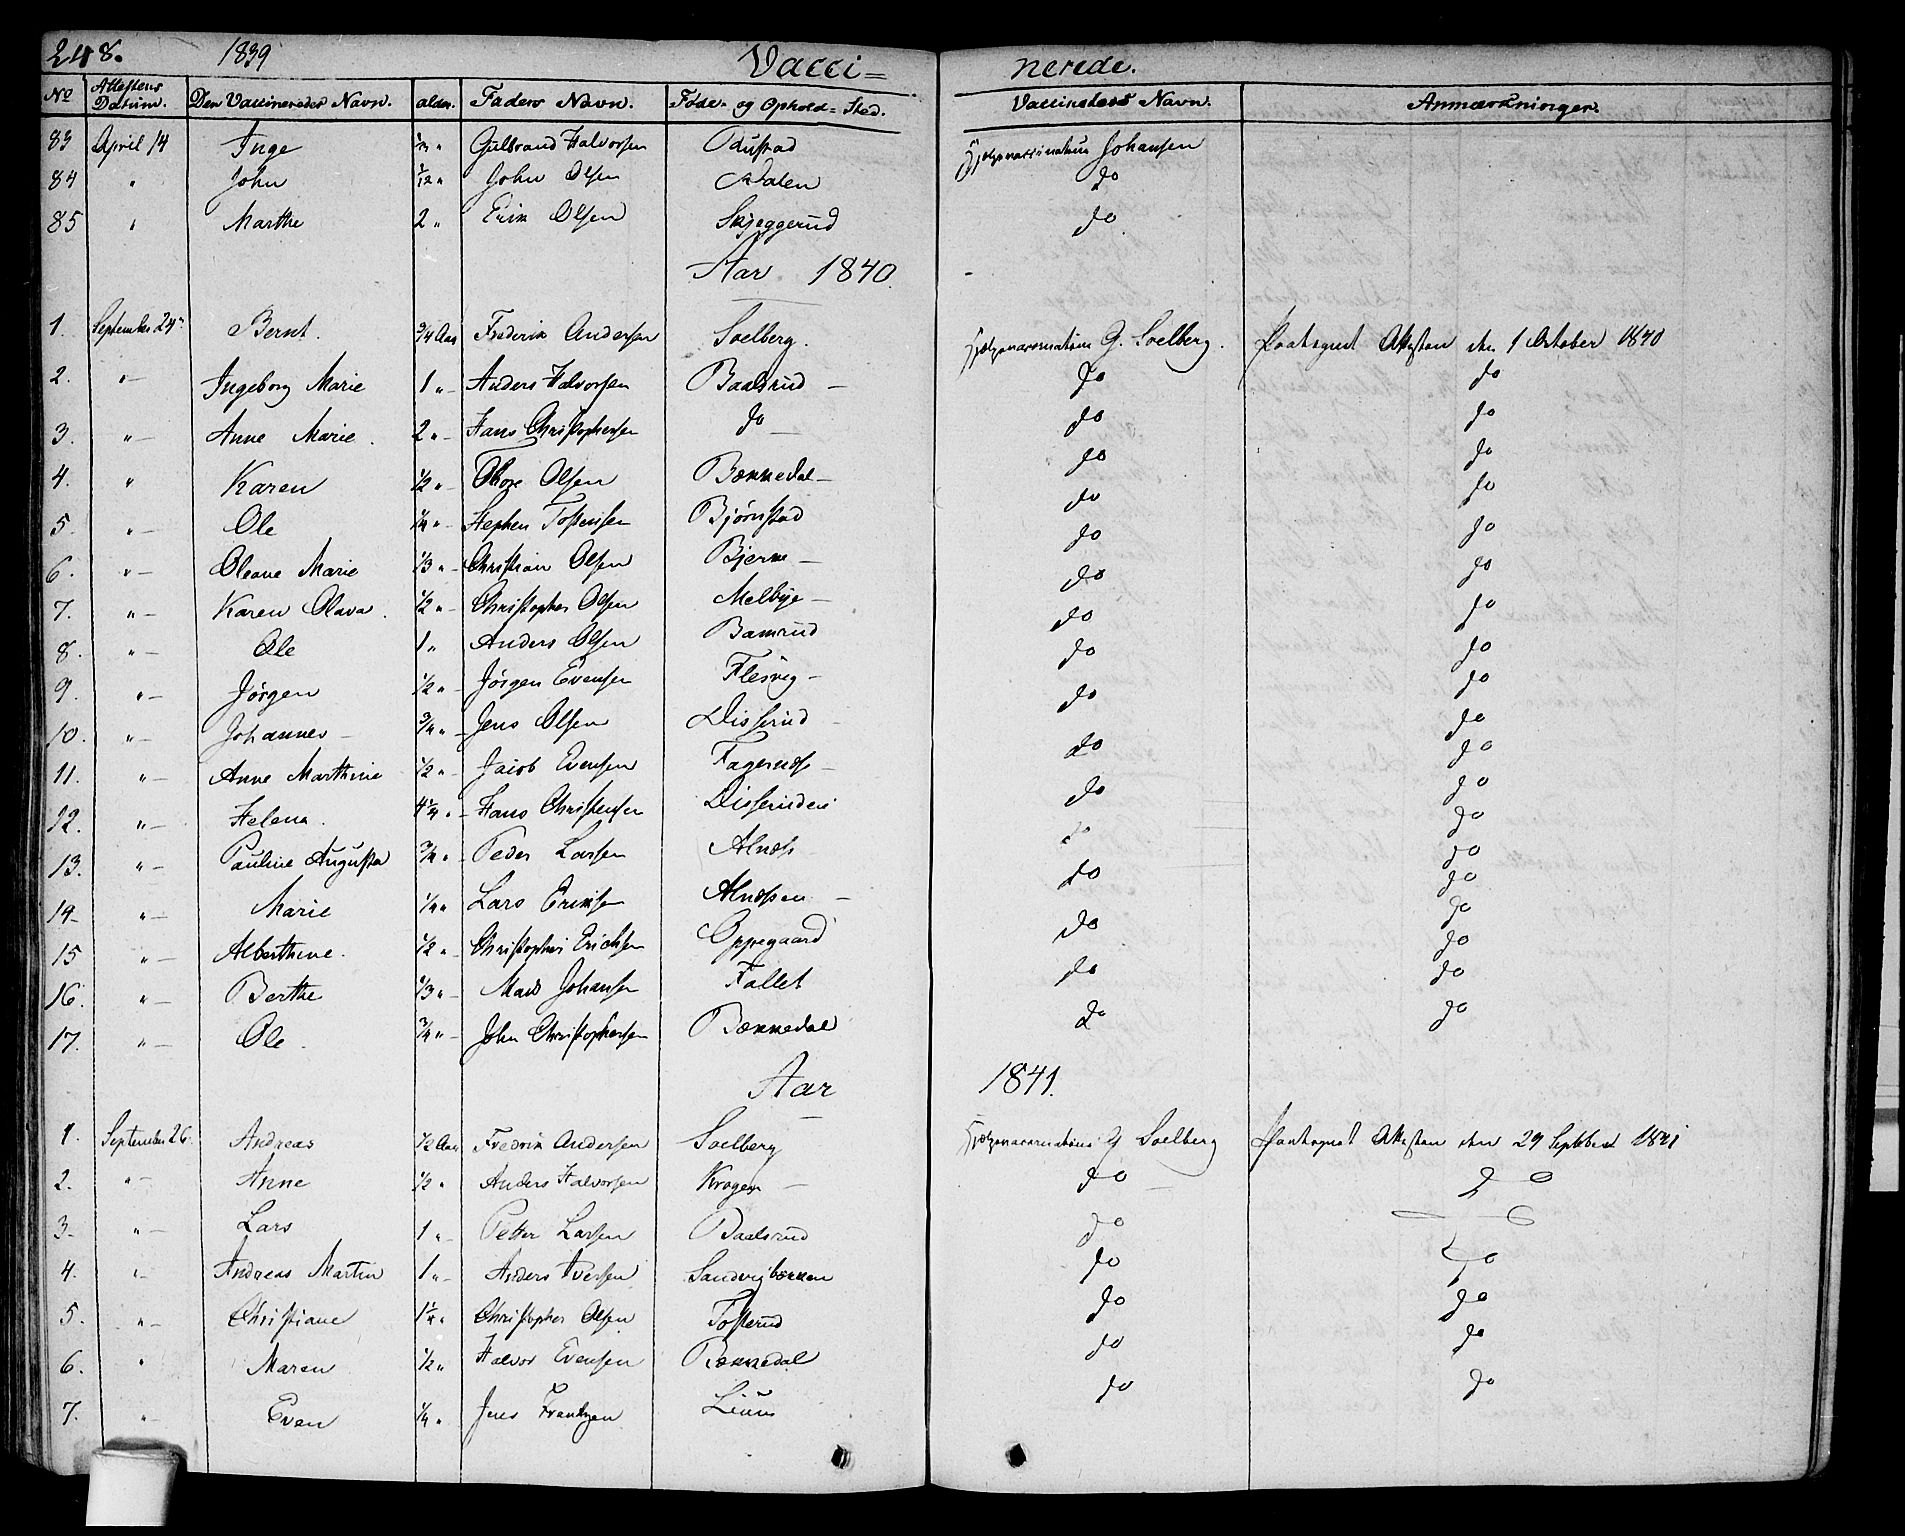 248. 1839 Vacci= nerede.
No Attestens Datum. Den Vaccineredes Navn. alder. Faders Navn. Føde- og Ophold=Sted. Vaccinateurs Navn. Anmærkninger.
83 April 14 Inge Gulbrand Halvorsen Rustad Johansen
84 " John John Olsen Dalen do
85 " Marthe 2 " Erik Olsen Skjeggerud do
Aar 1840.
1. September 24 Bernt. 3/4 Aar Frederik Andersen Soelberg. G. Soelberg. Paategnet Attesten den 1 October 1840
2. " Ingeborg Marie 1 " Anders Halvorsen Baalsrud do do
3. " Anne Marie. 2 " Hans Christophersen do do do
4. " Karen 1/2 " Thore Olsen Bækkedal do do
5. " Ole 1/4 " Stephen Tostensen Bjørnstad do do
6. " Oleane Marie 1/3 " Christian Olsen Bjerke do do
7. " Karen Olava. 1/2 " Christopher Olsen Melbye do do
8. " Ole 1 " Anders Olsen Bamrud do do
9. " Jörgen 1/2 " Jörgen Evensen Flesvig do do
10. " Johannes 3/4 " Jens Olsen Disserud do do
11. " Anne Marthine 1/2 " Jacob Evensen Fagernæss do do
12. " Helena. 4 1/4 " Hans Christensen do do
13. " Pauline Augusta 3/4 " Peder Larsen Alnæss do do
14 " Marie 1/4 " Lars Eriksen do do
15 " Alberthine. 1/2 " Christopher Erichsen Oppegaard do do
16. " Berthe 1/3 " Mads Johansen Fallet do do
17. " Ole. 3/4 " John Christophersen Bækkedal do do
Aar 1841.
1. September 26. Andreas 1/2 Aar Fredrik Andersen Soelberg G Soelberg Paategnet Attesten den 29 September 1841
2. " Anne 1/2 " Anders Halvorsen Krogen do do
3. " Lars 1 " Petter Larsen Baalsrud do do
4. " Andreas Martin 1 " Anders Iversen Sandvigbakken do do
5. " Christiane 1 1/4 " Christopher Olsen Tosterud do do
6. " Maren 1/2 " Halvor Evensen Bækkedal do do
7. " Even 1/4 " Jens Frantzen do do